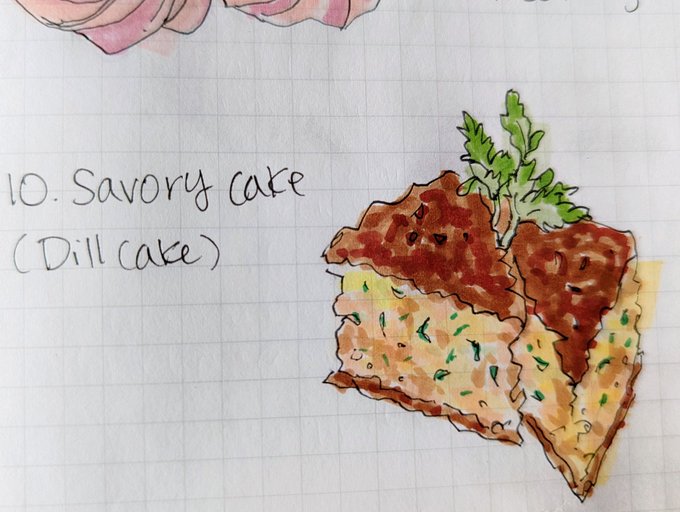 10. Savory cake
(Dill cake)